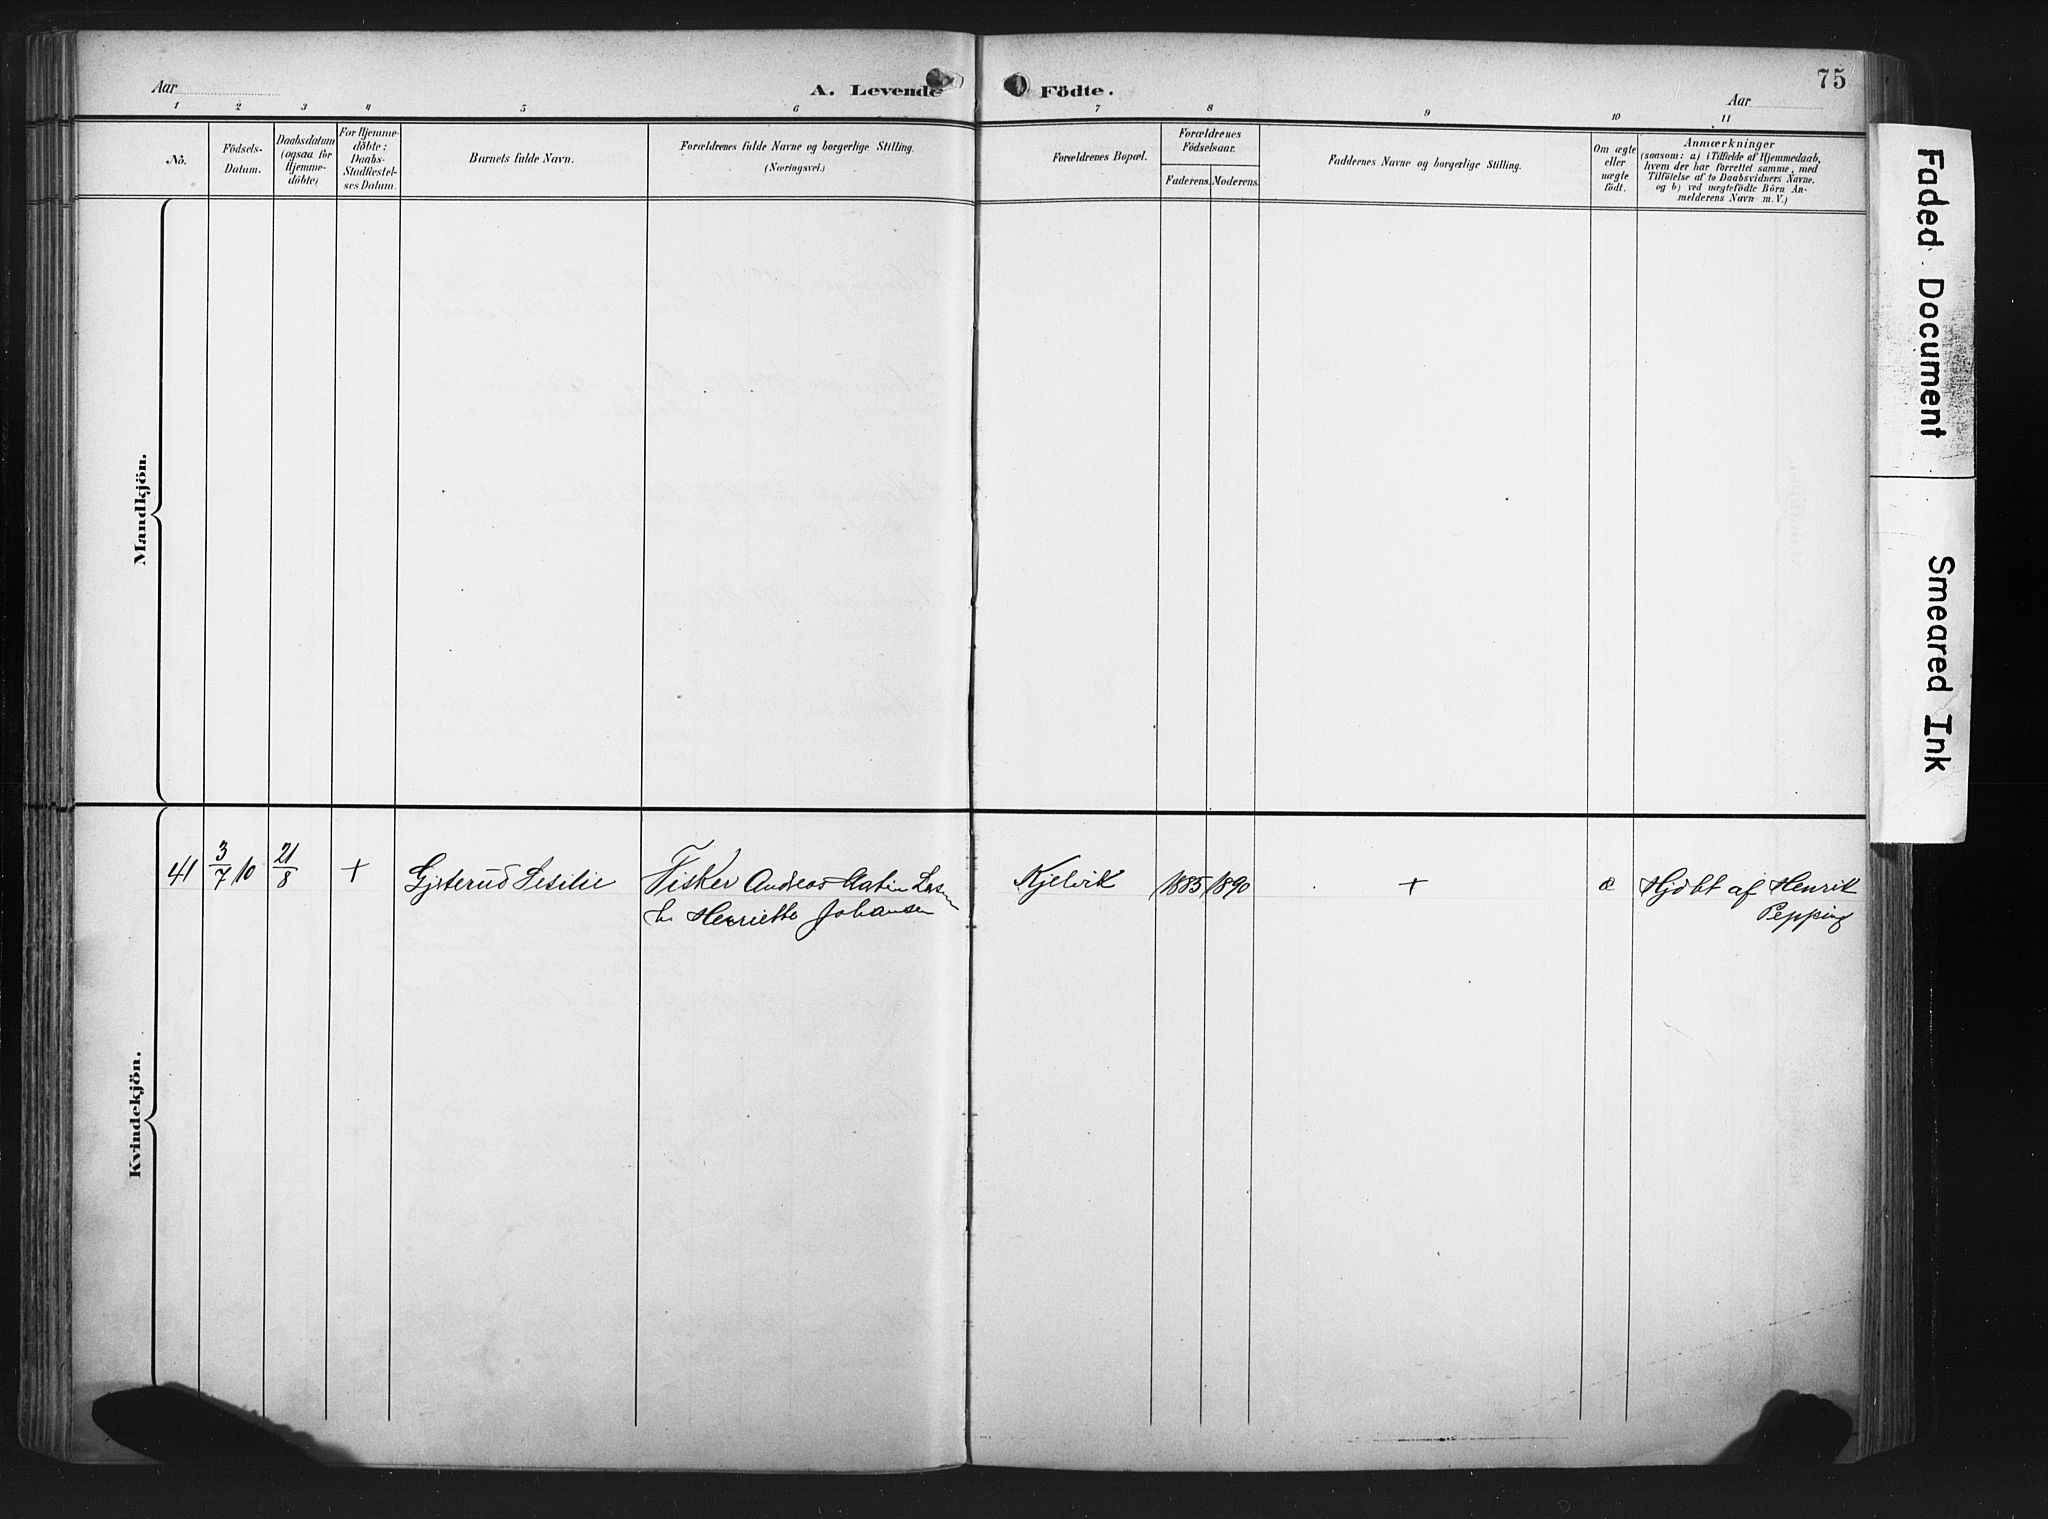 Aar
A. Levende Födte.
Aar
75
1 2 3 4 5 6 7 8 9 10 11
No.
Födsels-
Datum.
Daabsdatum
(ogsaa for
Hjemme-
döbte)
For Hjemme-
döbte:
Daabs-
Stadfæstel-
ses Datum.
Barnets fulde Navn.
Forældrenes fulde Navne og borgerlige Stilling.
(Næringsvei.)
Forældrenes Bopæl.
Forældrenes
Födselsaar.
Faderens. Moderens.
Faddernes Navne og borgerlige Stilling.
Om ægte
eller
uægte
födt.
Anmærkninger
(saasom: a) i Tilfælde af Hjemmedaab,
hvem der har forrettet samme, med
Tilföielse af to Daabsvidners Navne,
og b) ved uægtefödte Börn An-
melderens Navn m. V.)
Mandkjön.
Kvindekjön.
41 3/7 10 21/8 + Gjeterud Sesilie Fisker Andreas Martin
Henriette Johansen
Kjelvik 1885 1890 + æ Hjdbt af Henrik
Pepping
Faded Document
Smeared Ink